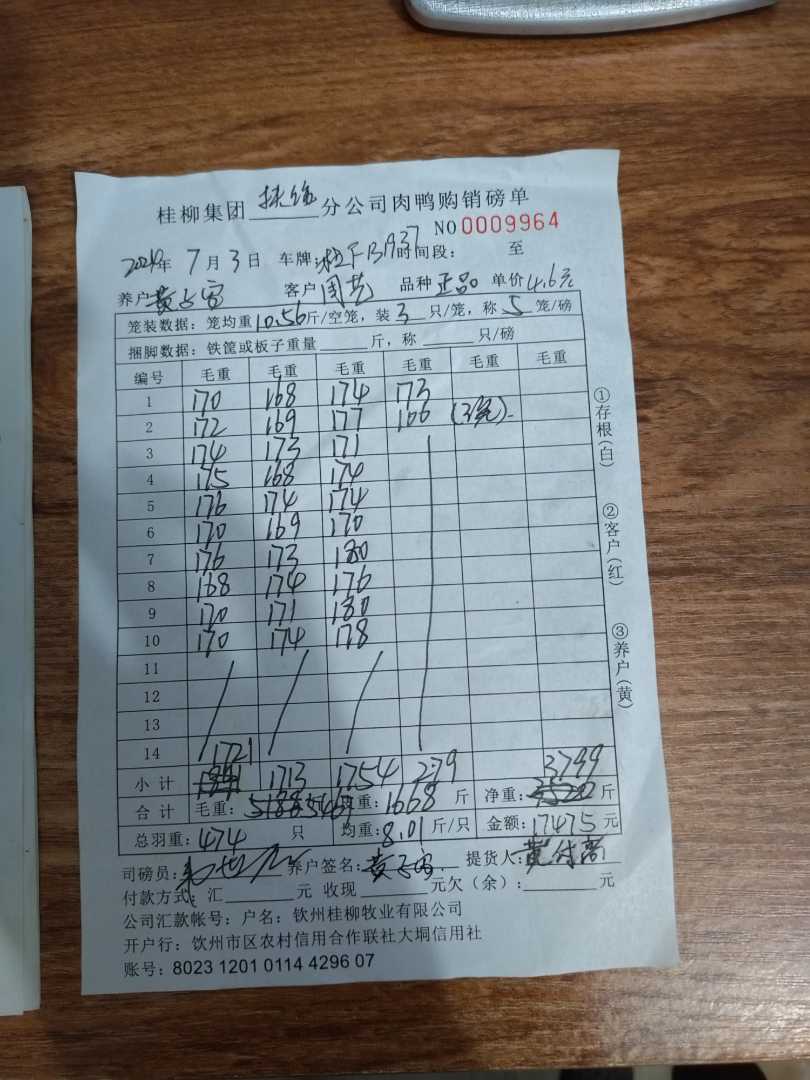 桂柳集团 扶绥 分公司肉鸭购销磅单
NO 0009964
2024年 7 月 3 日 车牌: 桂F 937 时间段: 至
养户 黄 富 客户 周艺 品种 正品 单价 4.6元
笼装数据: 笼均重 10.56 斤/空笼, 装 3 只/笼, 称 5 笼/磅
捆脚数据: 铁筐或板子重量 斤, 称 只/磅
编号 毛重 毛重 毛重 毛重 毛重 毛重
1 170 168 174 173
2 172 169 177 106 (3笼)
3 174 173 171
4 175 168 174
5 176 174 174
6 170 169 170
7 176 173 180
8 168 174 176
9 170 171 180
10 170 174 178
11
12
13
14
小计 1721 1713 1754 279 3799
合计 毛重: 5467 重: 1668 斤 净重: 斤
总羽重: 474 只 均重: 8.01 斤/只 金额: 17475 元
司磅员: 养户签名: 黄 富 提货人: 黄
付款方式: 汇 元 收现 元欠(余): 元
公司汇款帐号: 户名: 钦州桂柳牧业有限公司
开户行: 钦州市区农村信用合作联社大垌信用社
账号: 8023 1201 0114 4296 07
①存根(白)
②客户(红)
③养户(黄)